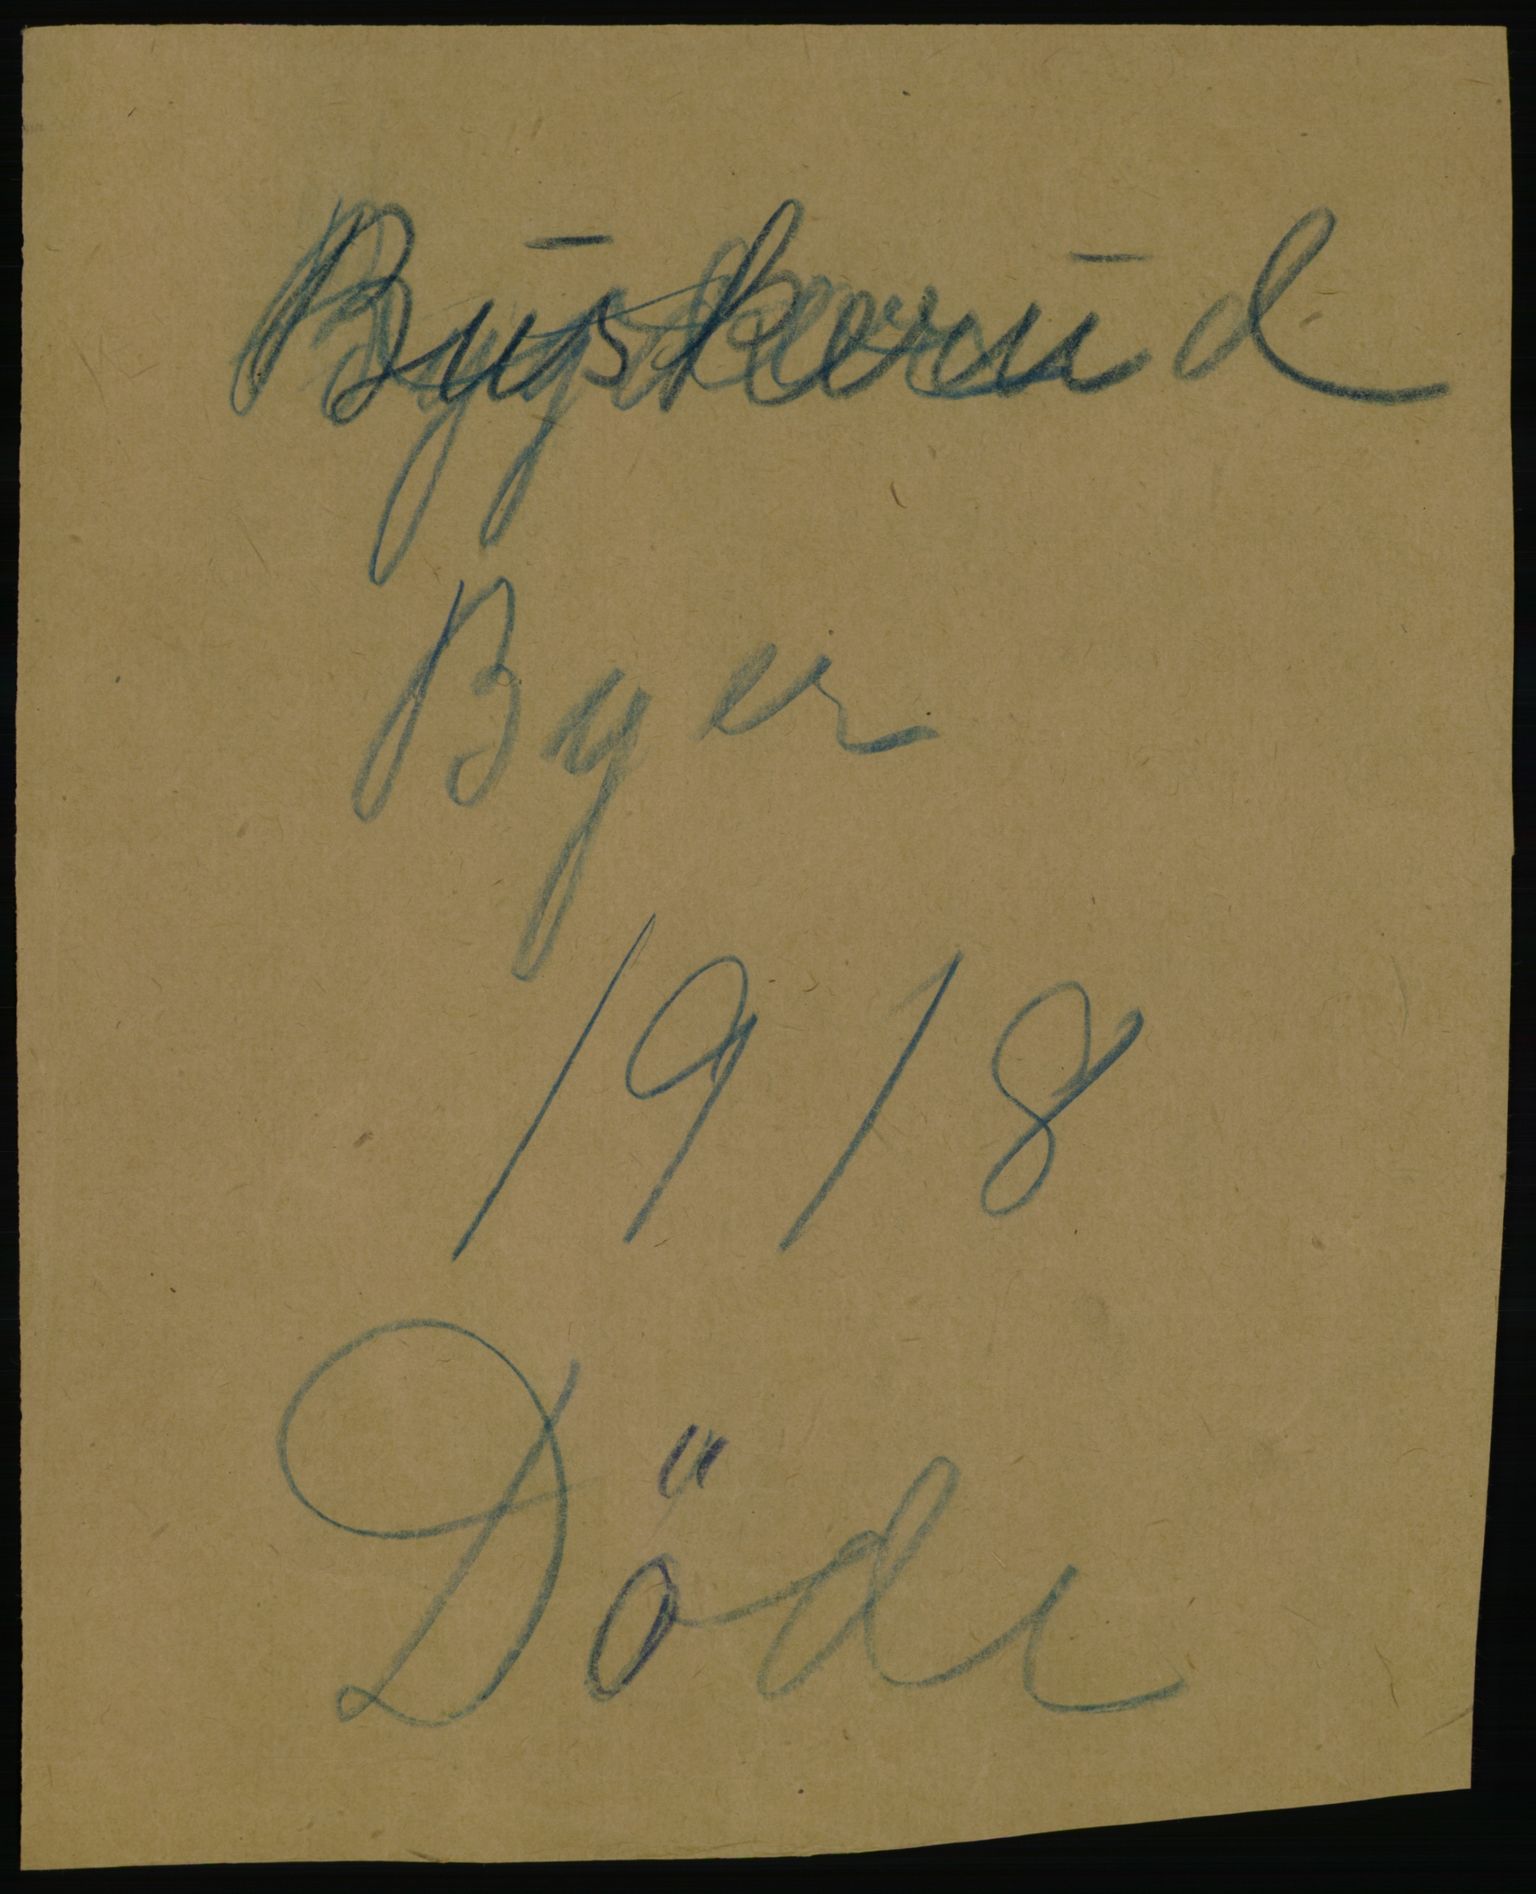 Buskerud
Byer
1918
Döde